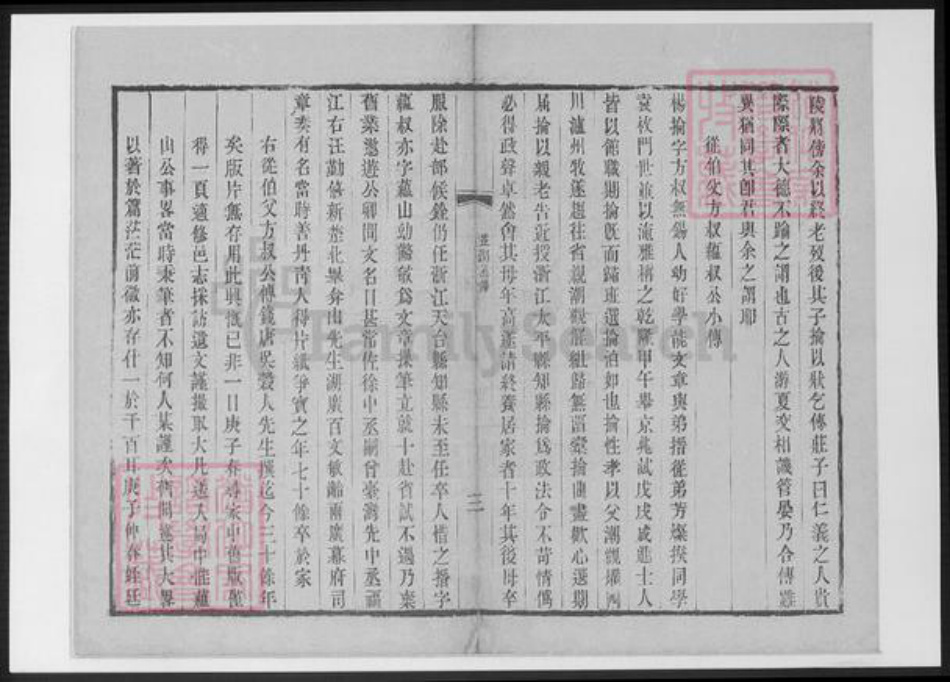 陵將傳余以終老歿後其子掄以狀乞傳莊子曰仁義之人貴
際際者大德不踰之謂也古之人游夏交相譏管晏乃合傳雖
異猶同其卽君與余之謂耶
從伯父方叔蘊叔公小傳
楊掄字方叔無錫人幼好學能文章與弟搢從弟芳燦揆同學
袁枚門世並以流雅稱之乾隆甲午舉京兆試戊戌成進士人
皆以館職期掄旣而歸班選掄泊如也掄性孝以父潮觀擢四
川瀘州牧遂趨往省親潮觀解組歸無慍掄曲盡歡心選期
屆掄以親老告近授浙江太平縣知縣掄爲政法令不苛情僞
必得政聲卓然會其母年高遂請終養居家者十年其後母卒
服除赴部候銓仍任浙江天台縣知縣未至任卒人惜之搢字
蘊叔亦字蘊山幼警敏爲文章操筆立就十赴省試不遇乃棄
舊業遨遊公卿間文名日甚嘗佐徐中丞嗣曾臺灣先中丞
江右汪勤僖新楚北畢弇山先生湖廣百文敏齡兩廣幕府司
章奏有名當時善丹青人得片紙爭寶之年七十餘卒於家
右從伯父方叔公傳錢唐吳穀人先生撰迄今三十餘年
矣版片無存用此興慨已非一日庚子春尋家中舊版僅
得一頁適修邑志採訪遺文謹撮取大凡送入局中能蘊
山公事畧當時秉筆者不知何人某謹矢齊同遂其大畧
以著於篇茫茫前徽亦存什一於千百耳庚子仲春姪廷
三
FamilySearch